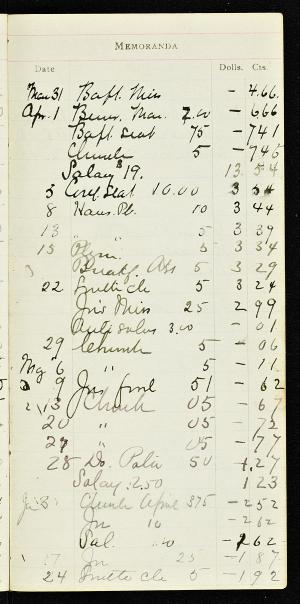 MEMORANDA
Date Dolls. Cts.
Mar 31 Bapt. Miss - 4.66
Apr. 1 Benev. Mar. 2.00 - 666
Bapt Seat 75 - 741
Church 5 - 746
Salary $19. 13 54
5 Conf. Seat 10.00 3 54
8 Haus. Pl. 10 3 44
13 " 5 3 39
15 5 3 34
Breakf. Ass 5 3 29
22 5 3 24
Jr's Miss 25 2 99
3.00 - 01
29 Church 5 - 06
May 6 " 5 - 11
9 Jr. fine 51 - 62
13 Church 05 - 67
20 " 05 - 72
27 " 05 - 77
28 Do. 50 - 1,27
Salary 2.50 1 23
Ju 3 Church April 375 - 252
Jr 10 - 262
Sal. - 262
17 Jr 25 - 187
24 5 - 192